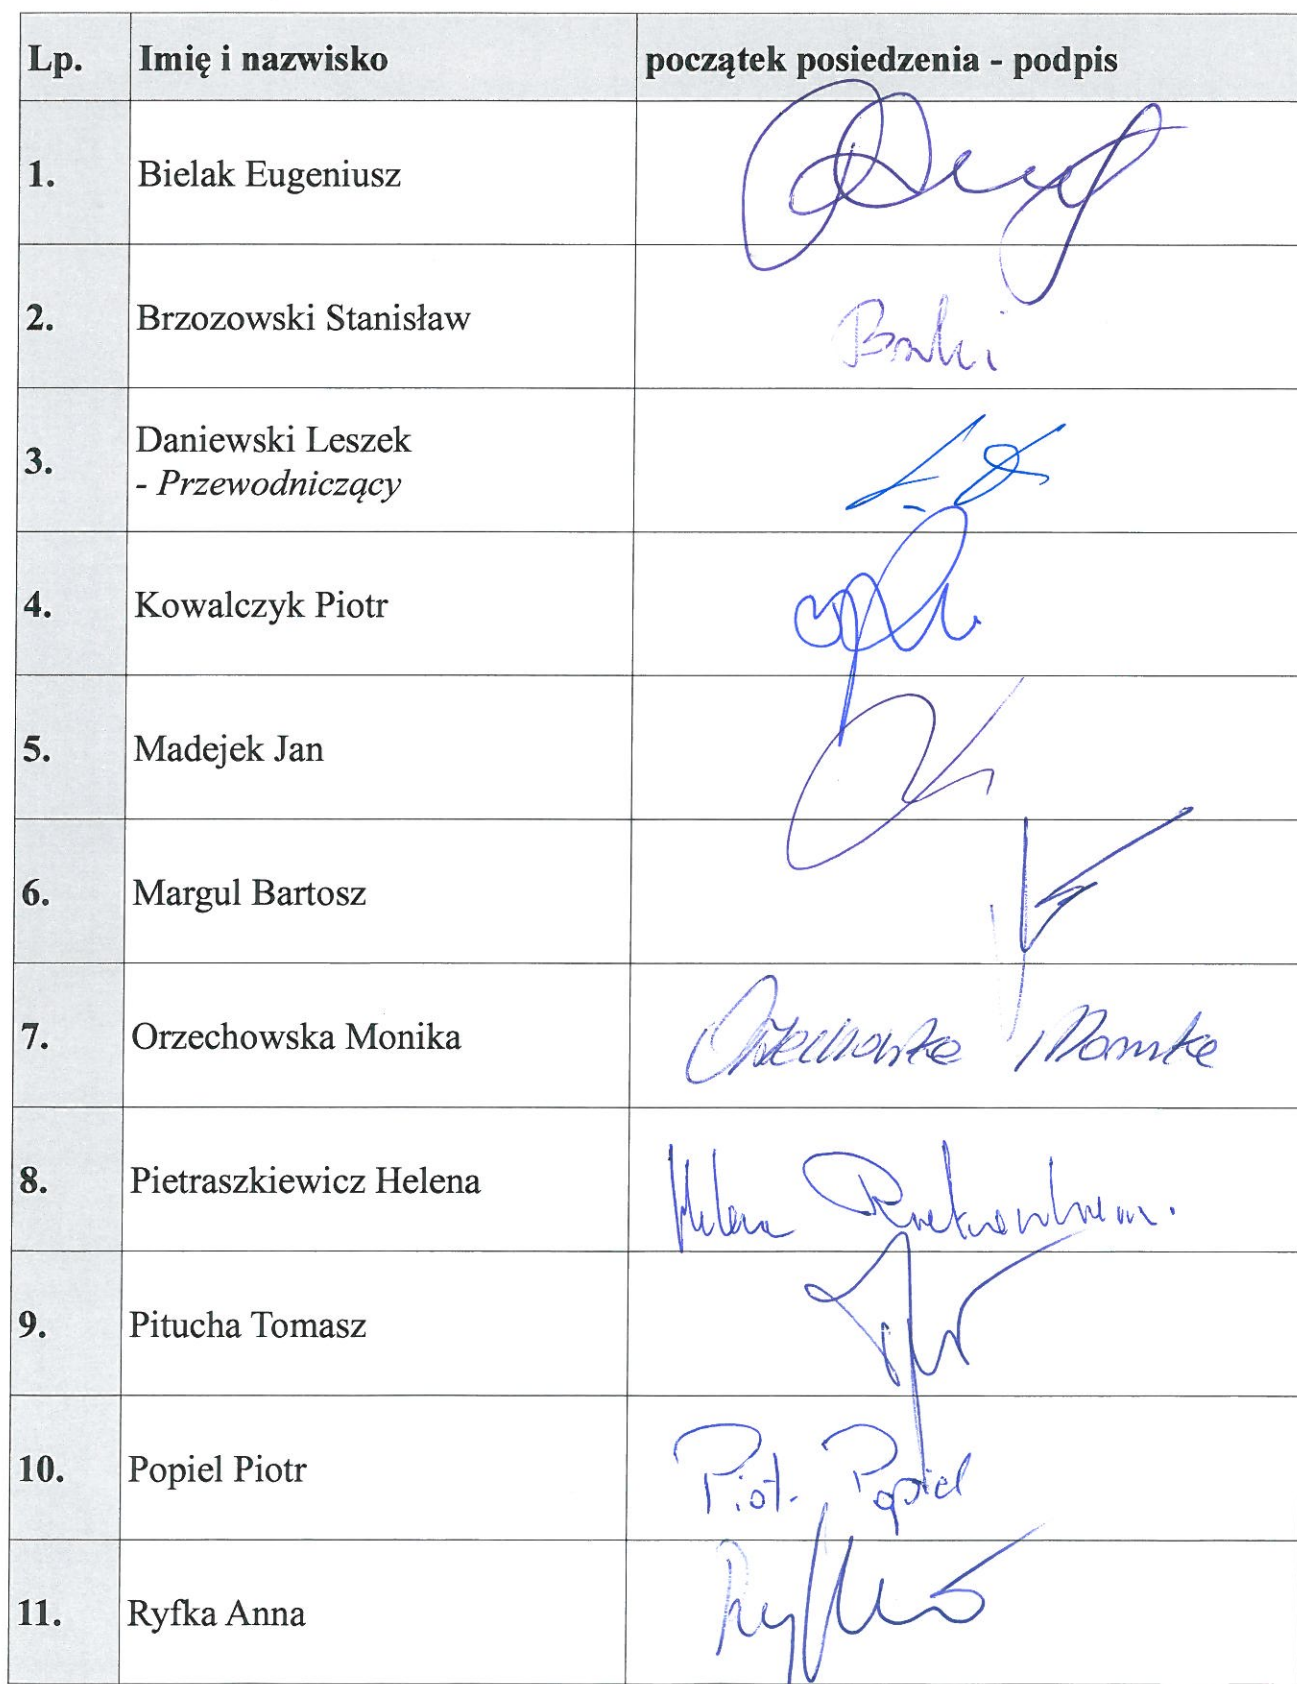 Lp. Imię i nazwisko początek posiedzenia - podpis
1. Bielak Eugeniusz
2. Brzozowski Stanisław
3. Daniewski Leszek
- Przewodniczący
4. Kowalczyk Piotr
5. Madejek Jan
6. Margul Bartosz
7. Orzechowska Monika Orzechowska Monika
8. Pietraszkiewicz Helena Helena
9. Pitucha Tomasz
10. Popiel Piotr Piotr Popiel
11. Ryfka Anna